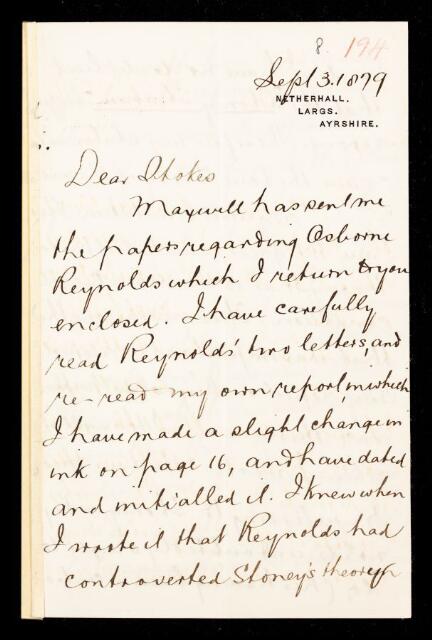 8. 194
Sept 3. 1879
NETHERHALL.
LARGS.
AYRSHIRE.
Dear Stokes
Maxwell has sent me
the papers regarding Osborne
Reynolds which I return to you
enclosed. I have carefully
read Reynolds' two letters, and
re-read my own report, in which
I have made a slight change in
ink on page 16, and have dated
and initialled it. I knew when
I wrote it that Reynolds had
controverted Stoney's theory